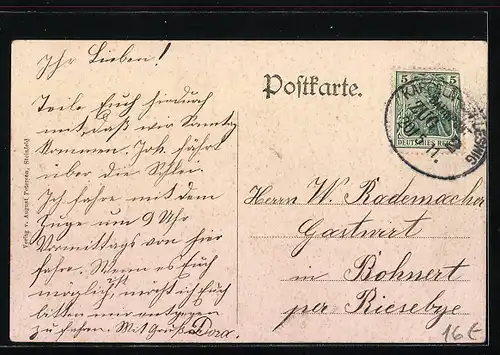 Ihr Lieben!
Teile Euch hierdurch
mit, daß wir Sonntag
kommen. Joh. fährt
über die Schlei.
Ich fahre mit dem
Zuge um 9 Uhr
Vormittags von hier
fahre. Wenn es Euch
möglich ist, möcht ich Euch
bitten mir entgegen
zu fahren. Mit Gruß Dora.
Verlag v. August Petersen, Steinfeld
Postkarte.
5 5
DEUTSCHES REICH
ZUG
Herrn W. Rademacher
Gastwirt
in Bohnert
per Riesebye
16€